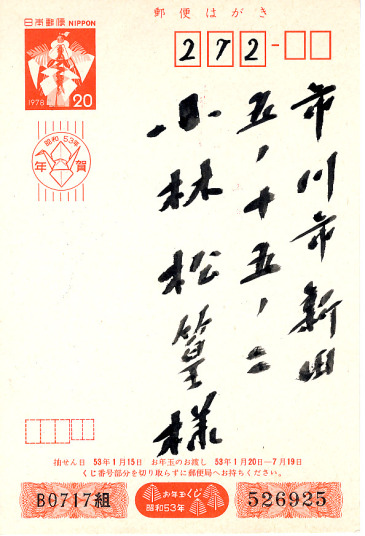 郵便はがき
日本郵便 NIPPON
1978 20
272-
昭和53年
年賀
市川市新田
五、十五、二
小林松篁様
抽せん日 53年1月15日 お年玉のお渡し 53年1月20日―7月19日
くじ番号部分を切り取らずに郵便局へお持ちください。
B0717組
お年玉くじ
昭和53年
526925